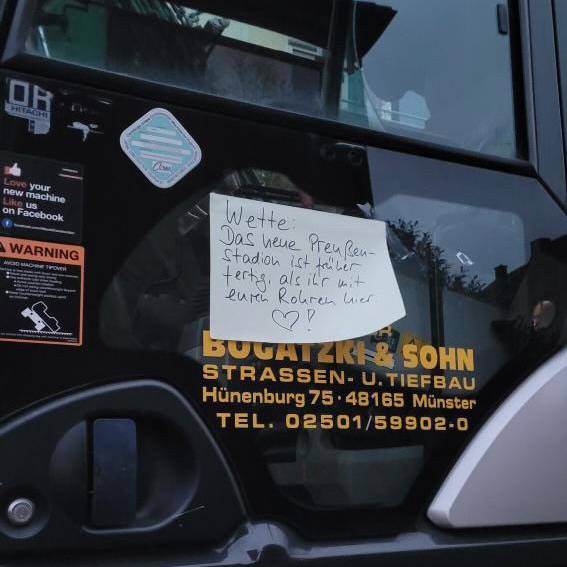 HITACHI
Love your
new machine
Like us
on Facebook
WARNING
AVOID MACHINE TIPOVER
Wette:
Das neue Preußen-
stadion ist früher
fertig, als ihr mit
euren Rohren hier.
♡!
BOGATZKI & SOHN
STRASSEN- U. TIEFBAU
Hünenburg 75 · 48165 Münster
TEL. 02501/59902-0